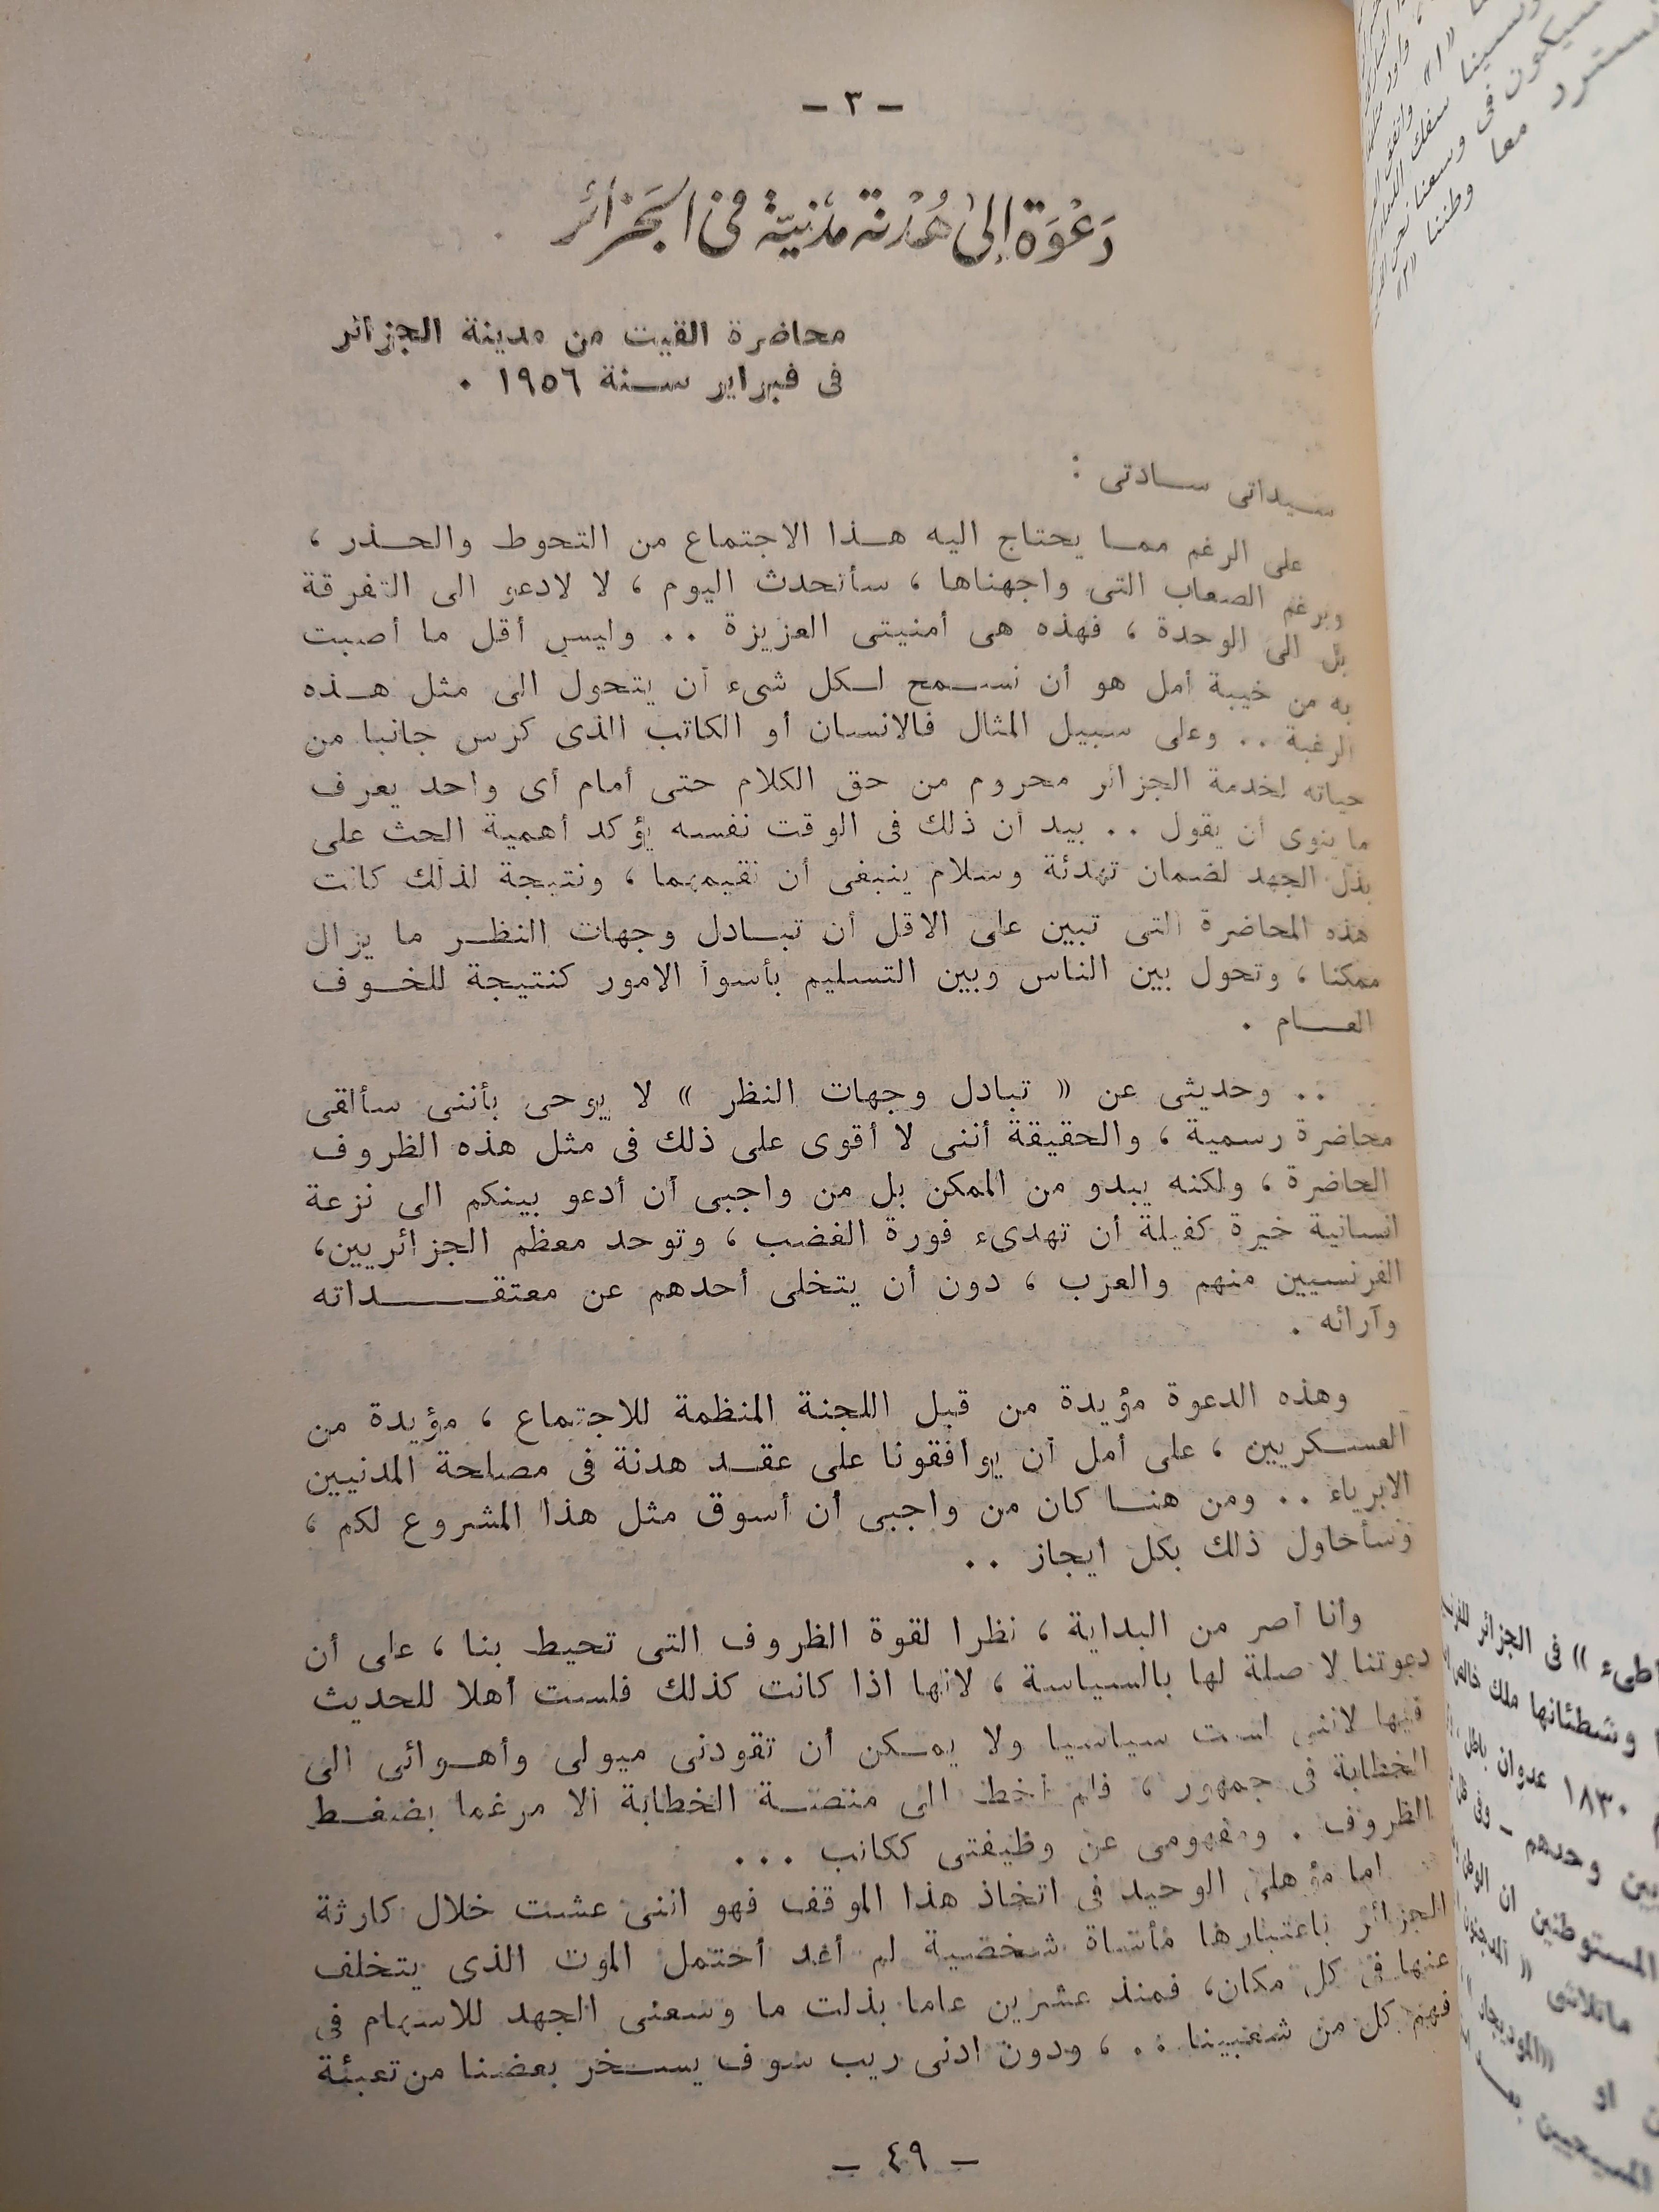 - ٣ -
دَعْوَة إلى هُدْنة مَدَنيّة في الجَزائر
محاضرة القيت من مدينة الجزائر
فى فبراير سنة ١٩٥٦ .
سيداتى سادتى :
على الرغم مما يحتاج اليه هذا الاجتماع من التحوط والحذر ،
وبرغم الصعاب التى واجهناها ، سأتحدث اليوم ، لا لادعو الى التفرقة
بل الى الوحدة ، فهذه هى أمنيتى العزيزة .. وليس أقل ما أصبت
به من خيبة أمل هو أن نسمح لكل شىء أن يتحول الى مثل هذه
الرغبة .. وعلى سبيل المثال فالانسان أو الكاتب الذى كرس جانبا من
حياته لخدمة الجزائر محروم من حق الكلام حتى أمام أى واحد يعرف
ما ينوى أن يقول .. بيد أن ذلك فى الوقت نفسه يؤكد أهمية الحث على
بذل الجهد لضمان تهدئة وسلام ينبغى أن نقيمهما ، ونتيجة لذلك كانت
هذه المحاضرة التى تبين على الاقل أن تبادل وجهات النظر ما يزال
ممكنا ، وتحول بين الناس وبين التسليم بأسوأ الامور كنتيجة للخوف
العام .
.. وحديثى عن « تبادل وجهات النظر » لا يوحى بأننى سألقى
محاضرة رسمية ، والحقيقة أننى لا أقوى على ذلك فى مثل هذه الظروف
الحاضرة ، ولكنه يبدو من الممكن بل من واجبى أن أدعو بينكم الى نزعة
انسانية خيرة كفيلة أن تهدىء فورة الغضب ، وتوحد معظم الجزائريين،
الفرنسيين منهم والعرب ، دون أن يتخلى أحدهم عن معتقداته
وآرائه .
وهذه الدعوة مؤيدة من قبل اللجنة المنظمة للاجتماع ، مؤيدة من
العسكريين ، على أمل أن يوافقونا على عقد هدنة فى مصلحة المدنيين
الابرياء .. ومن هنا كان من واجبى أن أسوق مثل هذا المشروع لكم ،
وسأحاول ذلك بكل ايجاز ..
وأنا أصر من البداية ، نظرا لقوة الظروف التى تحيط بنا ، على أن
دعوتنا لا صلة لها بالسياسة ، لانها اذا كانت كذلك فلست أهلا للحديث
فيها لاننى لست سياسيا ولا يمكن أن تقودنى ميولى وأهوائى الى
الخطابة فى جمهور ، فلم أخط الى منصة الخطابة الا مرغما بضغط
الظروف . ومفهومى عن وظيفتى ككاتب ...
اما مؤهلى الوحيد فى اتخاذ هذا الموقف فهو اننى عشت خلال كارثة
الجزائر باعتبارها مأساة شخصية لم أعد أحتمل الموت الذى يتخلف
عنها فى كل مكان، فمنذ عشرين عاما بذلت ما وسعنى الجهد للاسهام فى
فهم كل من شعبينا .. ، ودون ادنى ريب سوف يسخر بعضنا من تعبئة
- ٤٩ -
وطننا
معا
فى الجزائر
وشطئانها ملك
١٨٣٠ عدوان
وحدهم -
المستوطنين ان